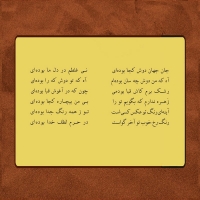 جان جهان دوش کجا بوده‌ای    نی غلطم در دل ما بوده‌ای
آه که من دوش چه سان بوده‌ام    آه که تو دوش که را بوده‌ای
رشک برم کاش قبا بودمی    چون که در آغوش قبا بوده‌ای
زهره ندارم که بگویم تو را    بی من بیچاره کجا بوده‌ای
آینه‌ای رنگ تو عکس کسی است    تو ز همه رنگ جدا بوده‌ای
رنگ رخ خوب تو آخر گواست    در حرم لطف خدا بوده‌ای